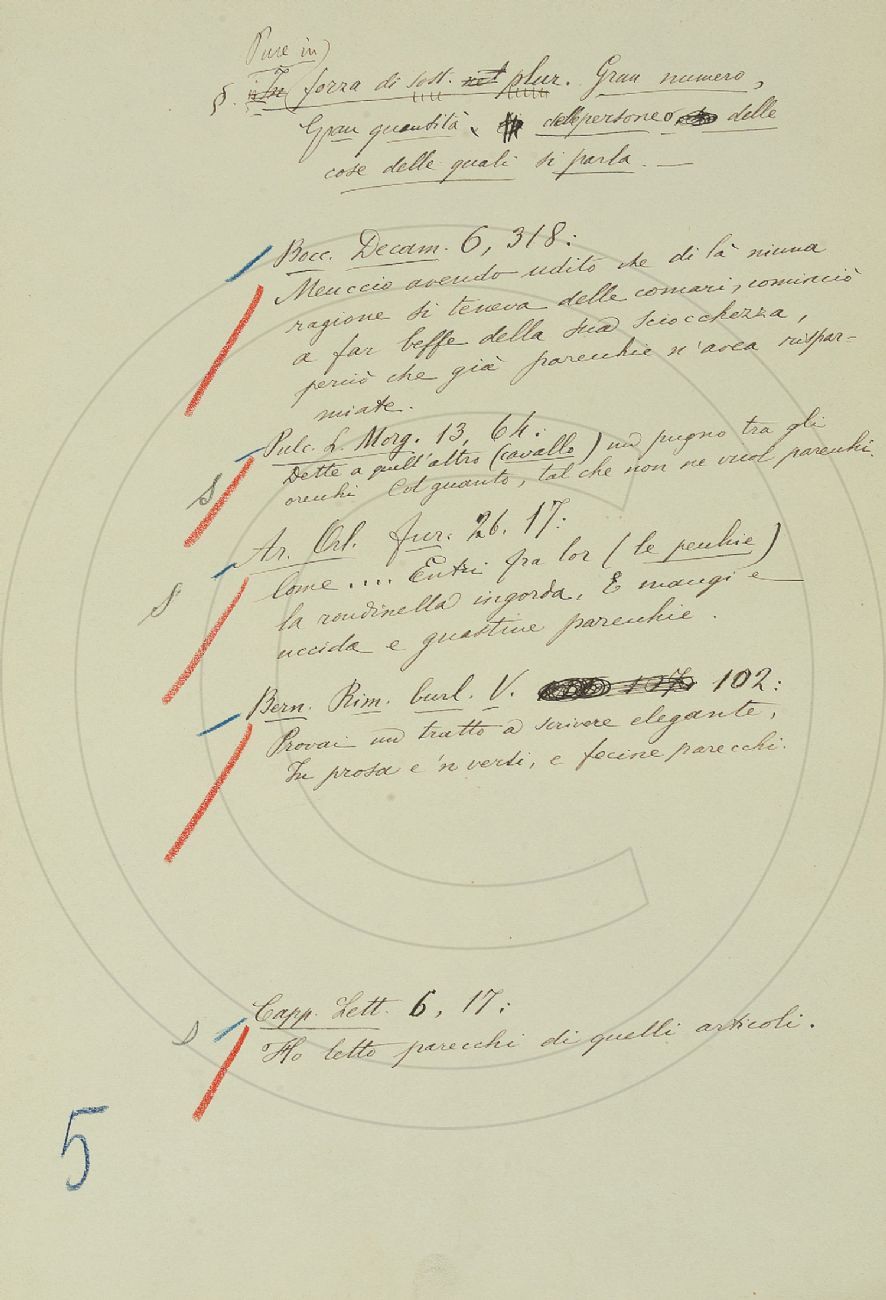 Pure in
§. In forza di sost. nel plur. Gran numero,
Gran quantità, delle persone o delle
cose delle quali si parla. —
Bocc. Decam. 6, 318:
Meuccio avendo udito che di là niuna
ragione si teneva delle comari, cominciò
a far beffe della sua sciocchezza,
perciò che già parecchie n'avea rispar=
miate.
Pulc. L. Morg. 13, 64.:
Dette a quell'altro (cavallo) un pugno tra gli
orecchi Col guanto, tal che non ne vuol parecchi.
Ar. Orl. fur. 26. 17:
Come .... Entri fra lor (le pecchie)
la rondinella ingorda, E mangi e
uccida e guastine parecchie.
Bern. Rim. burl. V. 102:
Provai un tratto a scrivere elegante,
In prosa e 'n versi, e fecine parecchi.
Capp. Lett. 6, 17:
Ho letto parecchi di quelli articoli.
S
S
S
5
C